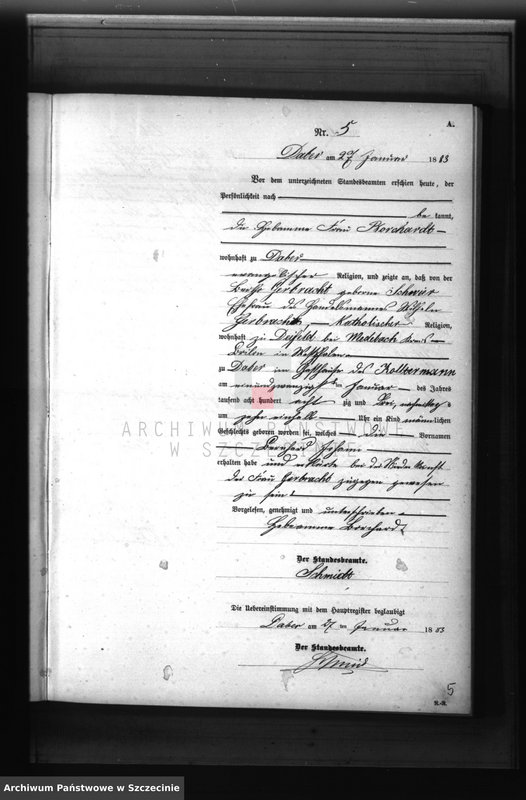 A.
Nr. 5
Daber am 27 Januar 1883
Vor dem unterzeichneten Standesbeamten erschien heute, der
Persönlichkeit nach
be kannt,
die Hebamme Frau Borchardt
wohnhaft zu Daber
evangelischer Religion, und zeigte an, daß von der
Gerbracht geborne
Ehefrau des Handelsmannes Wilhelm
Gerbracht, Katholischer Religion,
wohnhaft zu Deifeld bei Medebach Kreis
Brilon in Westfalen
zu Daber im Gasthause des Koltermann
am einundzwanzigsten Januar des Jahres
tausend acht hundert acht zig und drei, nachmittags
um zehn einhalb Uhr ein Kind männlichen
Geschlechts geboren worden sei, welches die Vornamen
Bernhard Johann
erhalten habe und erklärte bei der Niederkunft
der Frau Gerbracht zugegen gewesen
zu sein.
Vorgelesen, genehmigt und unterschrieben
Hebamme Borchardt
Der Standesbeamte.
Schmidt
Die Uebereinstimmung mit dem Hauptregister beglaubigt
Daber am 27 ten Januar 1883
Der Standesbeamte.
Schmidt
5
ARCHIWUM PAŃSTWOWE
W SZCZECINIE
Archiwum Państwowe w Szczecinie